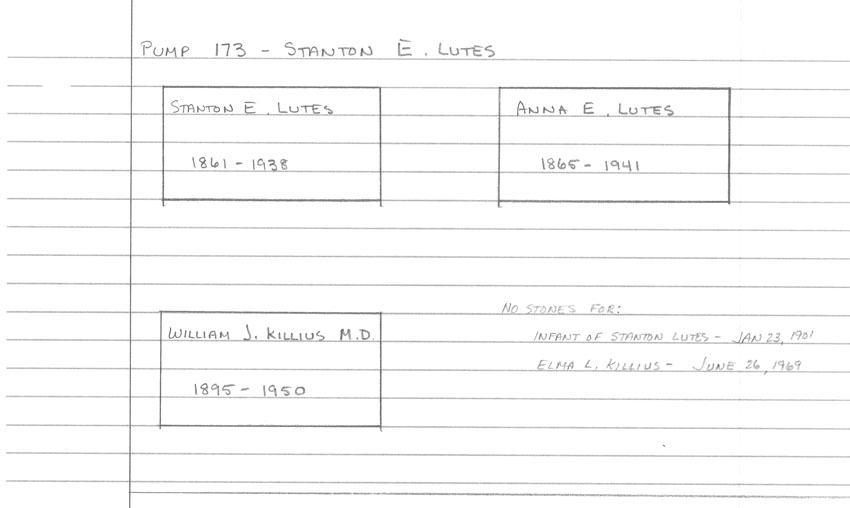 PUMP 173 - STANTON E. LUTES
STANTON E. LUTES
1861 - 1938
ANNA E. LUTES
1865 - 1941
WILLIAM J. KILLIUS M.D.
1895 - 1950
NO STONES FOR:
INFANT OF STANTON LUTES - JAN 23, 1901
ELMA L. KILLIUS - JUNE 26, 1969